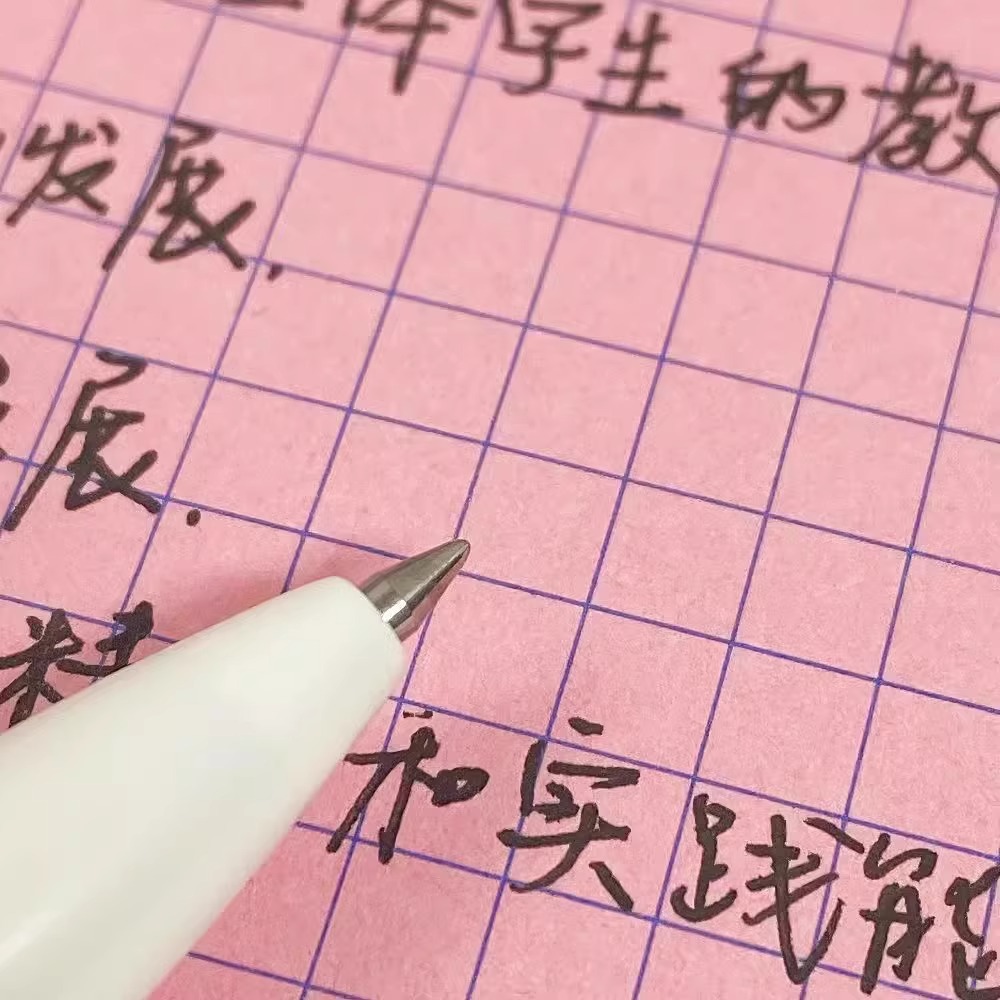 体学生的教
发展.
展.
和实践能